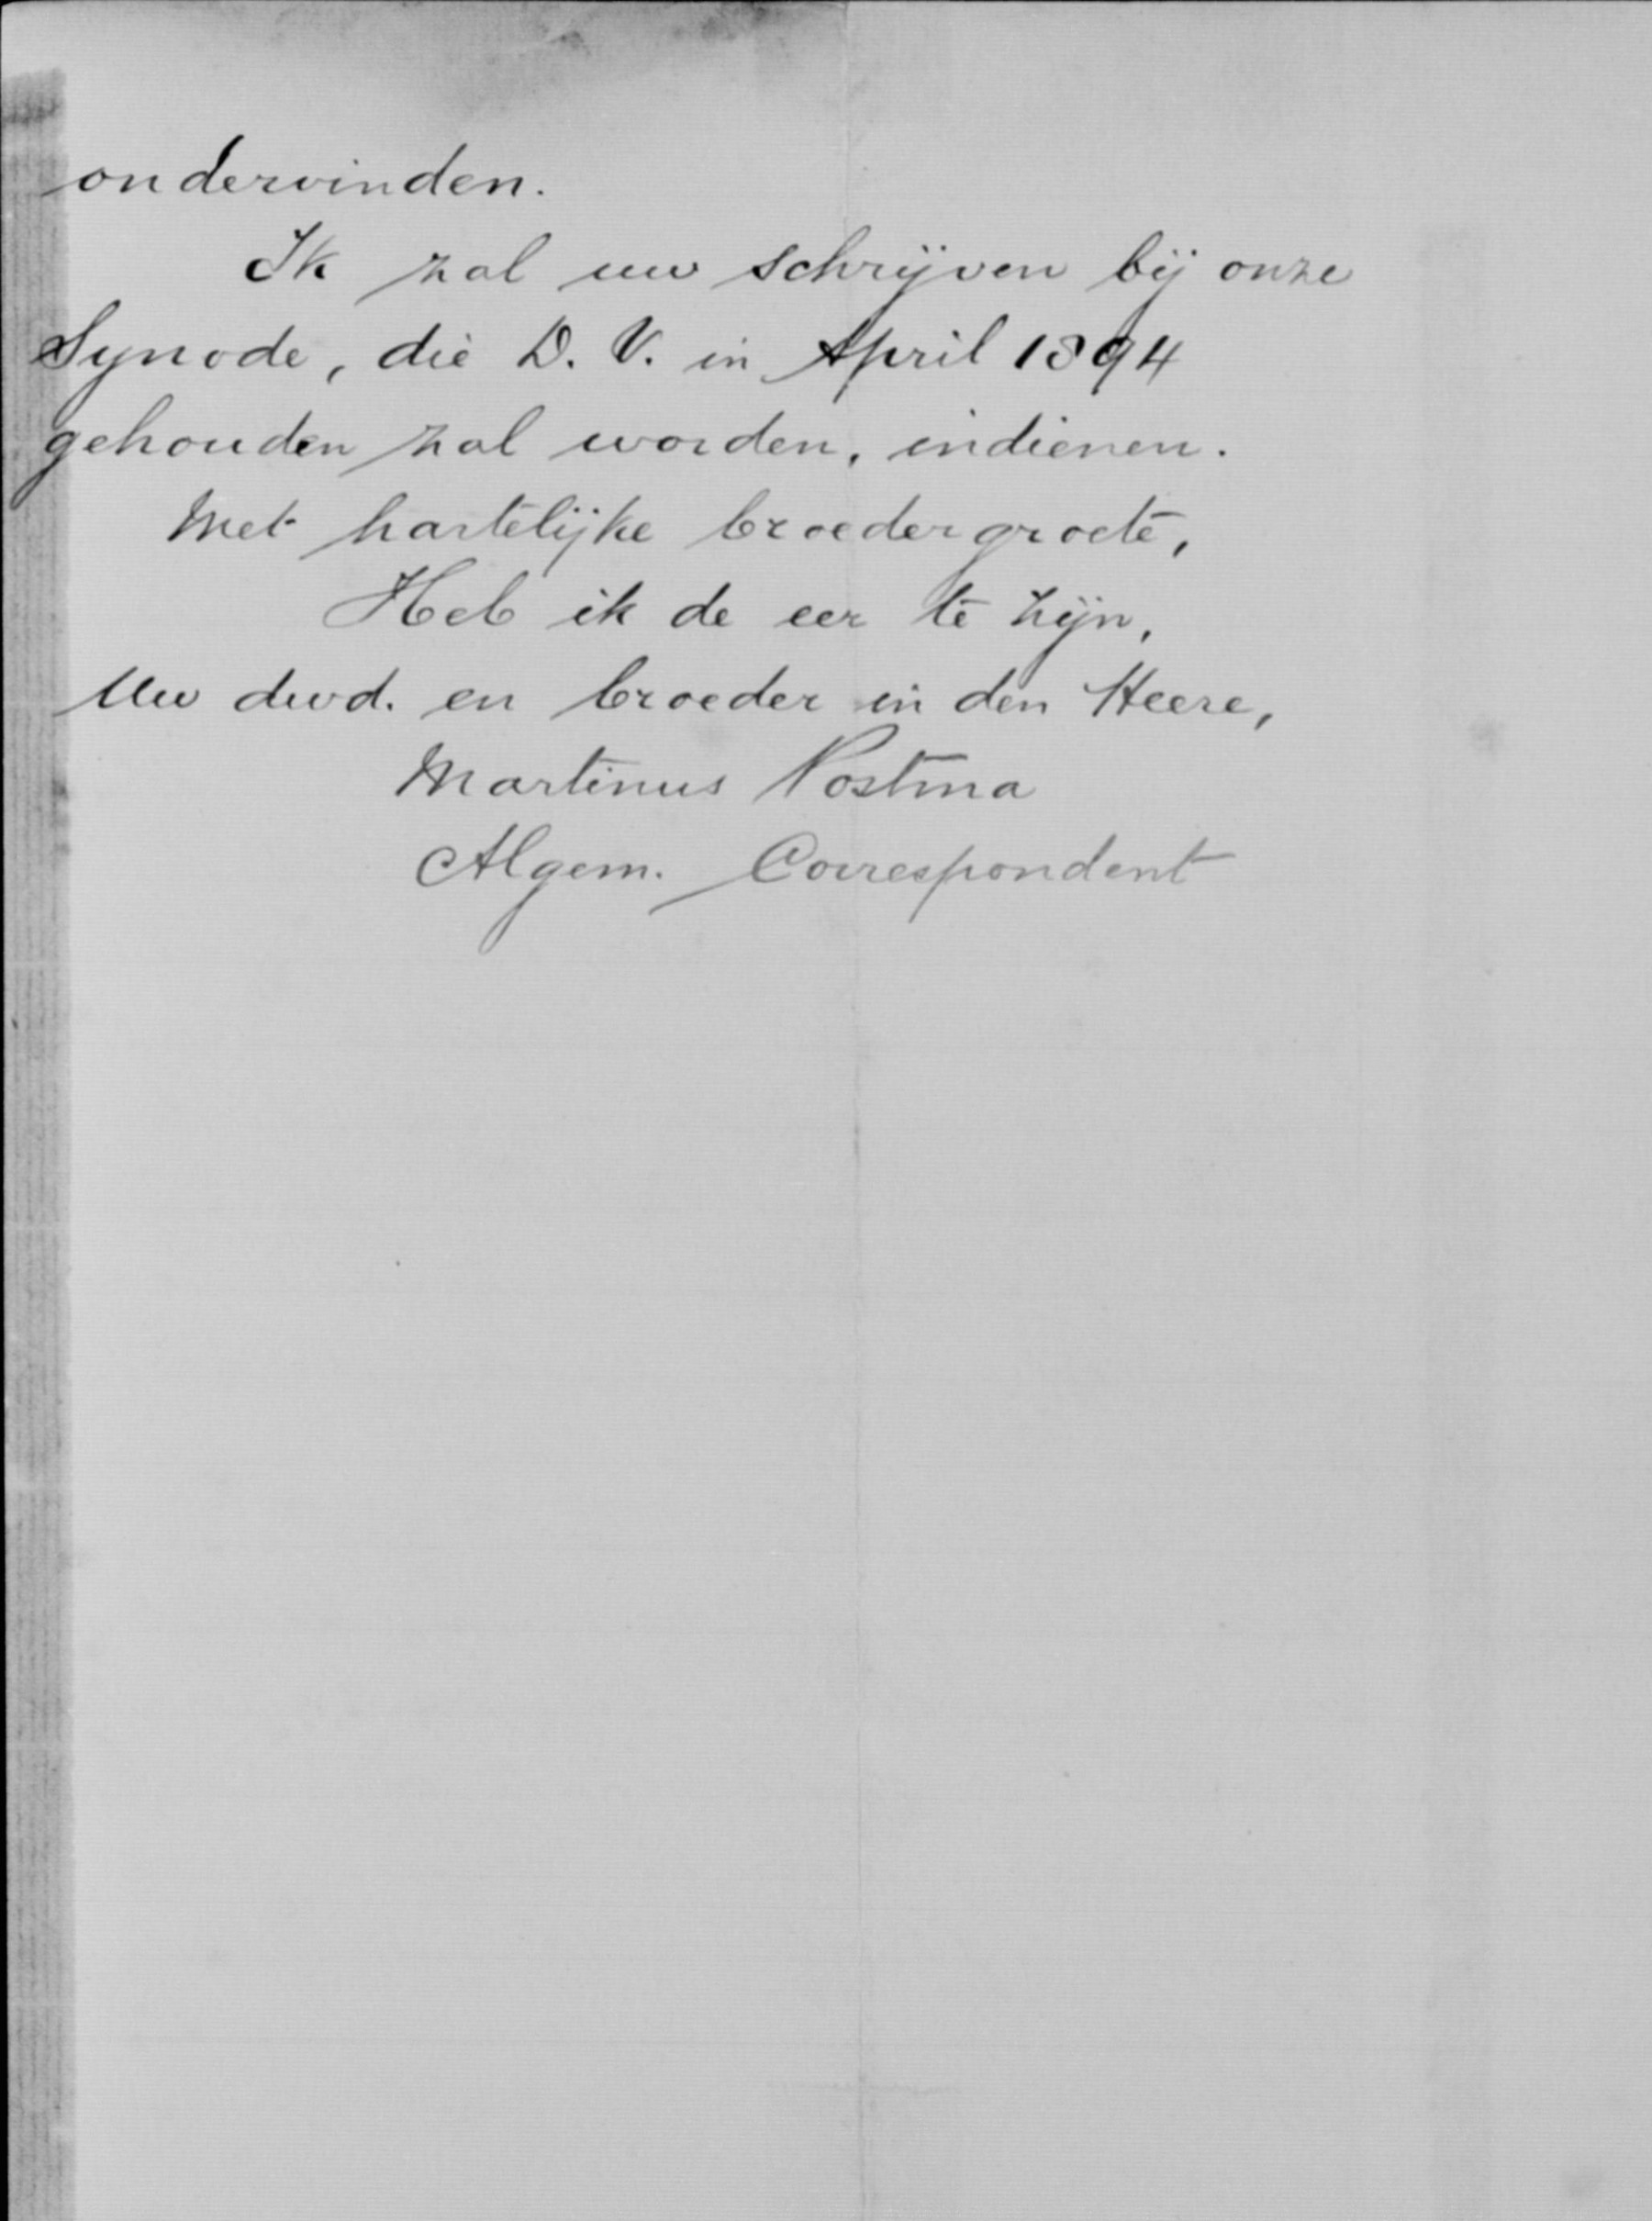 ondervinden.
Ik zal uw schrijven bij onze
Synode, die D. V. in April 1894
gehouden zal worden, indienen.
Met hartelijke broedergroete,
Heb ik de eer te zijn,
Uw dwd. en broeder in den Heere,
Martinus Postma
Algem. Correspondent